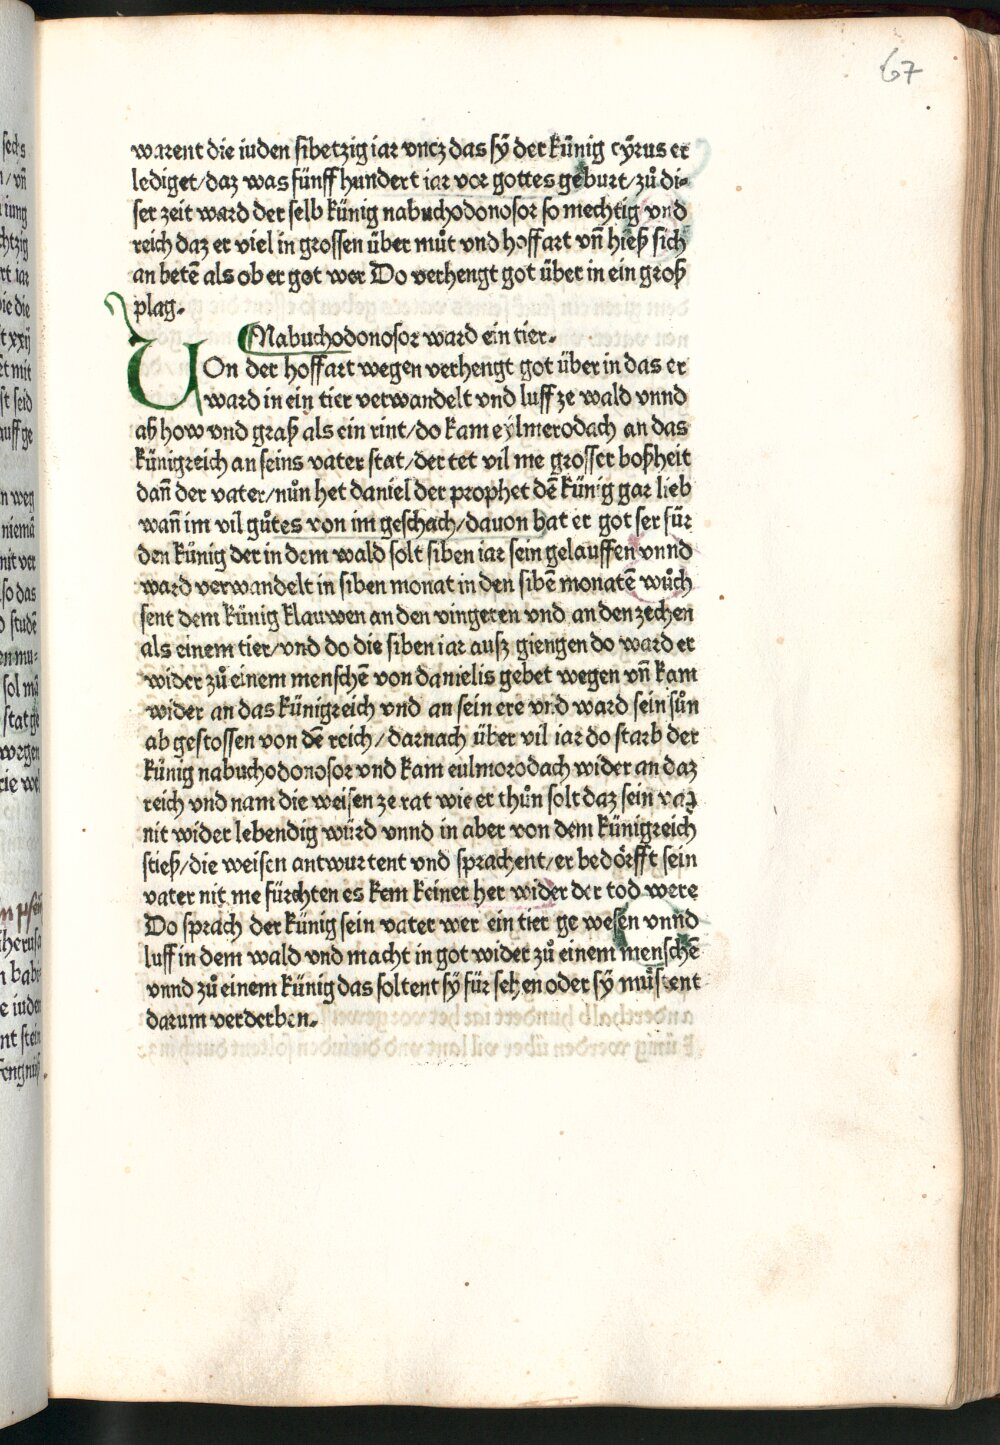 67
warent die iuden sibetzig iar vncz das sÿ der künig cÿrus er
lediget/daz was fünff hundert iar vor gottes geburt/zů di⸗
ser zeit ward der selb künig nabuchodonosor so mechtig vnd
reich daz er viel in grossen über můt vnd hoffart vn̄ hieß sich
an betē als ob er got wer Do verhengt got über in ein groß
plag.
Nabuchodonosor ward ein tier.
VOn der hoffart wegen verhengt got über in das er
ward in ein tier verwandelt vnd luff ze wald vnnd
aß how vnd graß als ein rint/do kam eylmerodach an das
künigreich an seins vater stat/der tet vil me grosser boßheit
dan̄ der vater/nůn het daniel der prophet dē künig gar lieb
wan̄ im vil gůtes von im geschach/dauon bat er got ser für
den künig der in dem wald solt siben iar sein gelauffen vnnd
ward verwandelt in siben monat in den sibē monatē wůch
sent dem künig klauwen an den vingeren vnd an den zechen
als einem tier/vnd do die siben iar ausz giengen do ward er
wider zů einem menschē von danielis gebet wegen vn̄ kam
wider an das künigreich vnd an sein ere vnd ward sein sůn
ab gestossen von dē reich/darnach über vil iar do starb der
künig nabuchodonosor vnd kam euilmorodach wider an daz
reich vnd nam die weisen ze rat wie er thůn solt daz sein
nit wider lebendig würd vnnd in aber von dem künigreich
stieß/die weisen antwurtent vnd sprachent/er bedörfft sein
vater nit me fürchten es kem keiner her wider der tod were
Do sprach der künig sein vater wer ein tier ge wesen vnnd
luff in dem wald vnd macht in got wider zů einem menschē
vnnd zů einem künig das soltent sÿ für sehen oder sÿ můstent
darum verderben.